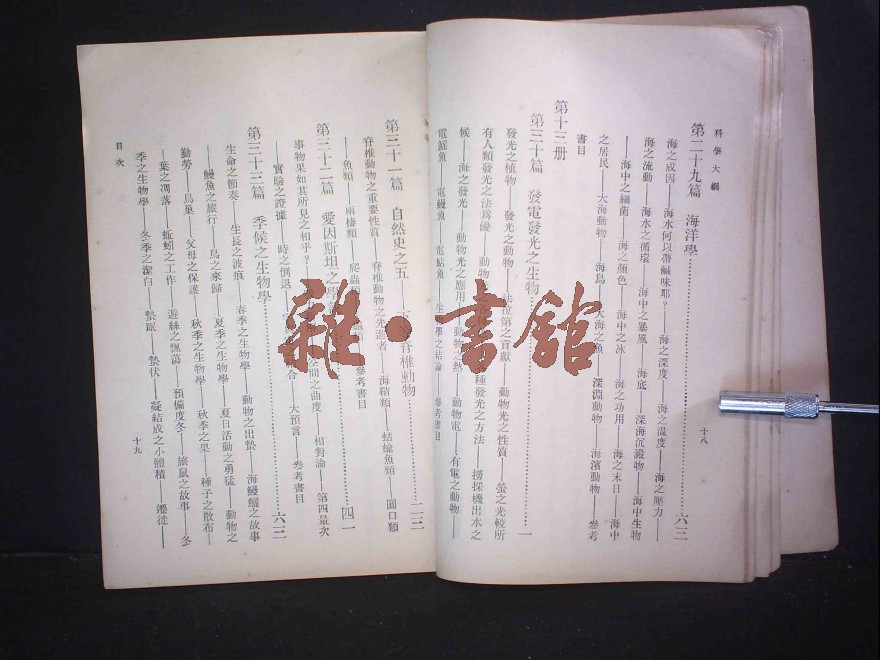 科學大綱
第二十九篇 海洋學……六三
海之成因——海水何以帶鹹味耶?——海之深度——海之溫度——海之壓力——
海之流動——海水之循環——海中之暴風——海底——深海沉澱物——海中生物
——海中之細菌——海之顏色——海中之冰——海之功用——海之末日——海中
之居民——大海動物——海鳥——大海之魚——深淵動物——海濱動物——參考
書目
十八
第十三册
第三十篇 發電發光之生物……一
發光之植物——發光之動物——法拉第之貢獻——動物光之性質——螢之光較所
有人類發光之法爲優——動物 種發光之方法——撈採機出水之
候——海之發光——動物光之應用——動物之熱——動物電——有電之動物——
電鱝魚——電鰻魚——電鮎魚——生 學之結論——參考書目
第三十一篇 自然史之五 下等脊椎動物……二三
脊椎動物之重要性質——脊椎動物之先進者——海鞘類——蛞蝓魚類——圓口類
——魚類——兩棲類——爬蟲類 參考書目
第三十二篇 愛因斯坦之學 ……四一
事物果如其所見之相乎? 空間之曲度——相對論——第四量次
——實驗之證據——時之倒退 合——大預言——參考書目
第三十三篇 季候之生物學……六三
生命之節奏——生長之波痕——春季之生物學——動物之出蟄——海鰻鱺之故事
——鰻魚之旅行——鳥之來歸——夏季之生物學——夏日活動之勇猛——動物之
勤勞——鳥巢——父母之保護——秋季之生物學——秋季之果——種子之散布—
—葉之凋落——蚯蚓之工作——遊絲之飄蕩——預備度冬——旅鼠之故事——冬
季之生物學——冬季之潔白——蟄眠——蟄伏——凝結成之小體積——遷徙——
目次
十九
雜·書館